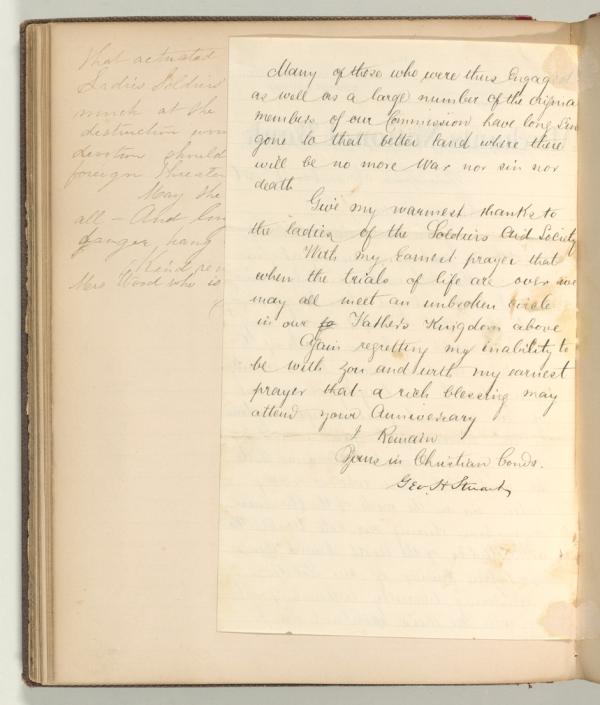 that actuated
Ladies Soldiers
much at the
destruction
devotion should
foreign
May the
all - And
danger, hang
Kind
Mrs Wood who is
Many of those who were thus Engaged
as well as a large number of the origina
members of our Commission have long Sin
gone to that better land where there
will be no more War nor sin nor
death
Give my warmest thanks to
the ladies of the Soldiers Aid Society
With my Earnest prayer that
when the trials of life are over we
may all meet an unbroken circle
in our Father's Kingdom above
Again regretting my inability to
be with you and with my earnest
prayer that a rich blessing may
attend your Anniversary
I Remain
Yours in Christian bonds.
Geo. H Stuart